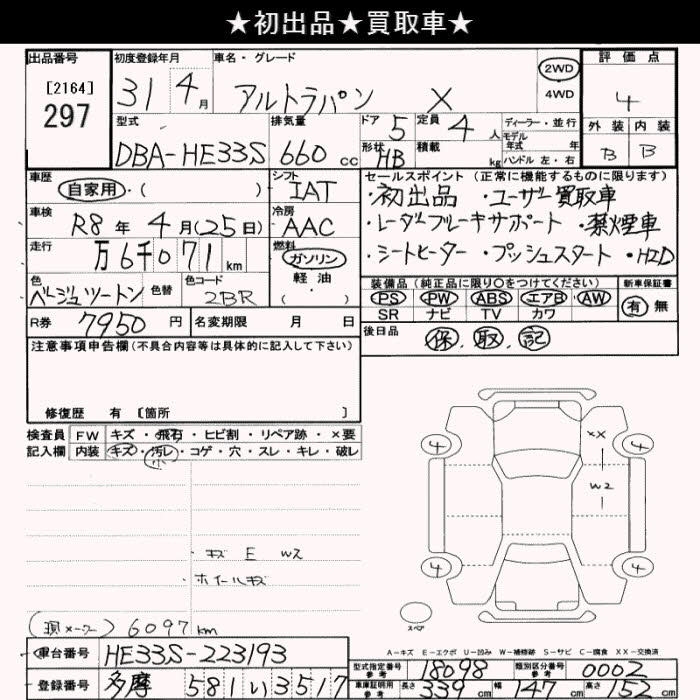 ★初出品★買取車★
出品番号 [2164] 297
初度登録年月 31年 4月
車名・グレード アルトラパン X
2WD 4WD
評価点 4
外装 B 内装 B
型式 DBA-HE33S
排気量 660 cc
ドア 5 定員 4 人
形状 HB 積載 kg
ディーラー・並行
モデル年式 年
ハンドル 左・右
車歴 自家用・( )
シフト IAT
セールスポイント (正常に機能するものに限ります)
・初出品 ・ユーザー買取車
・レーダーブレーキサポート ・禁煙車
・シートヒーター ・プッシュスタート ・HID
車検 R8年 4月(25日)
冷房 AAC
走行 万6千071 km
燃料 ガソリン 軽油 ( )
色 ベージュツートン 色替 色コード 2BR
装備品 (純正品に限り○をつけてください) 新車保証書
PS PW ABS エアB AW 有 無
SR ナビ TV カワ
R券 7950 円 名変期限 月 日
後日品 保.取.記
注意事項申告欄(不具合内容等は具体的に記入して下さい)
修復歴 有 [箇所 ]
検査員 FW キズ・飛石・ヒビ割・リペア跡・×要
記入欄 内装 キズ・汚レ・コゲ・穴・スレ・キレ・破レ
小
4 XX 4
W2
・キズ E W2
・ホイールキズ
4 4
スペア
(現メーター) 6097km
A-キズ E-エクボ U-凹み W-補修跡 S-サビ C-腐食 XX-交換済
車台番号 HE33S-223193
型式指定番号 参考 18098 類別区分番号 参考 0002
登録番号 多摩 581 い 3517
車庫証明用 参考 長さ 339 cm 幅 147 cm 高さ 153 cm